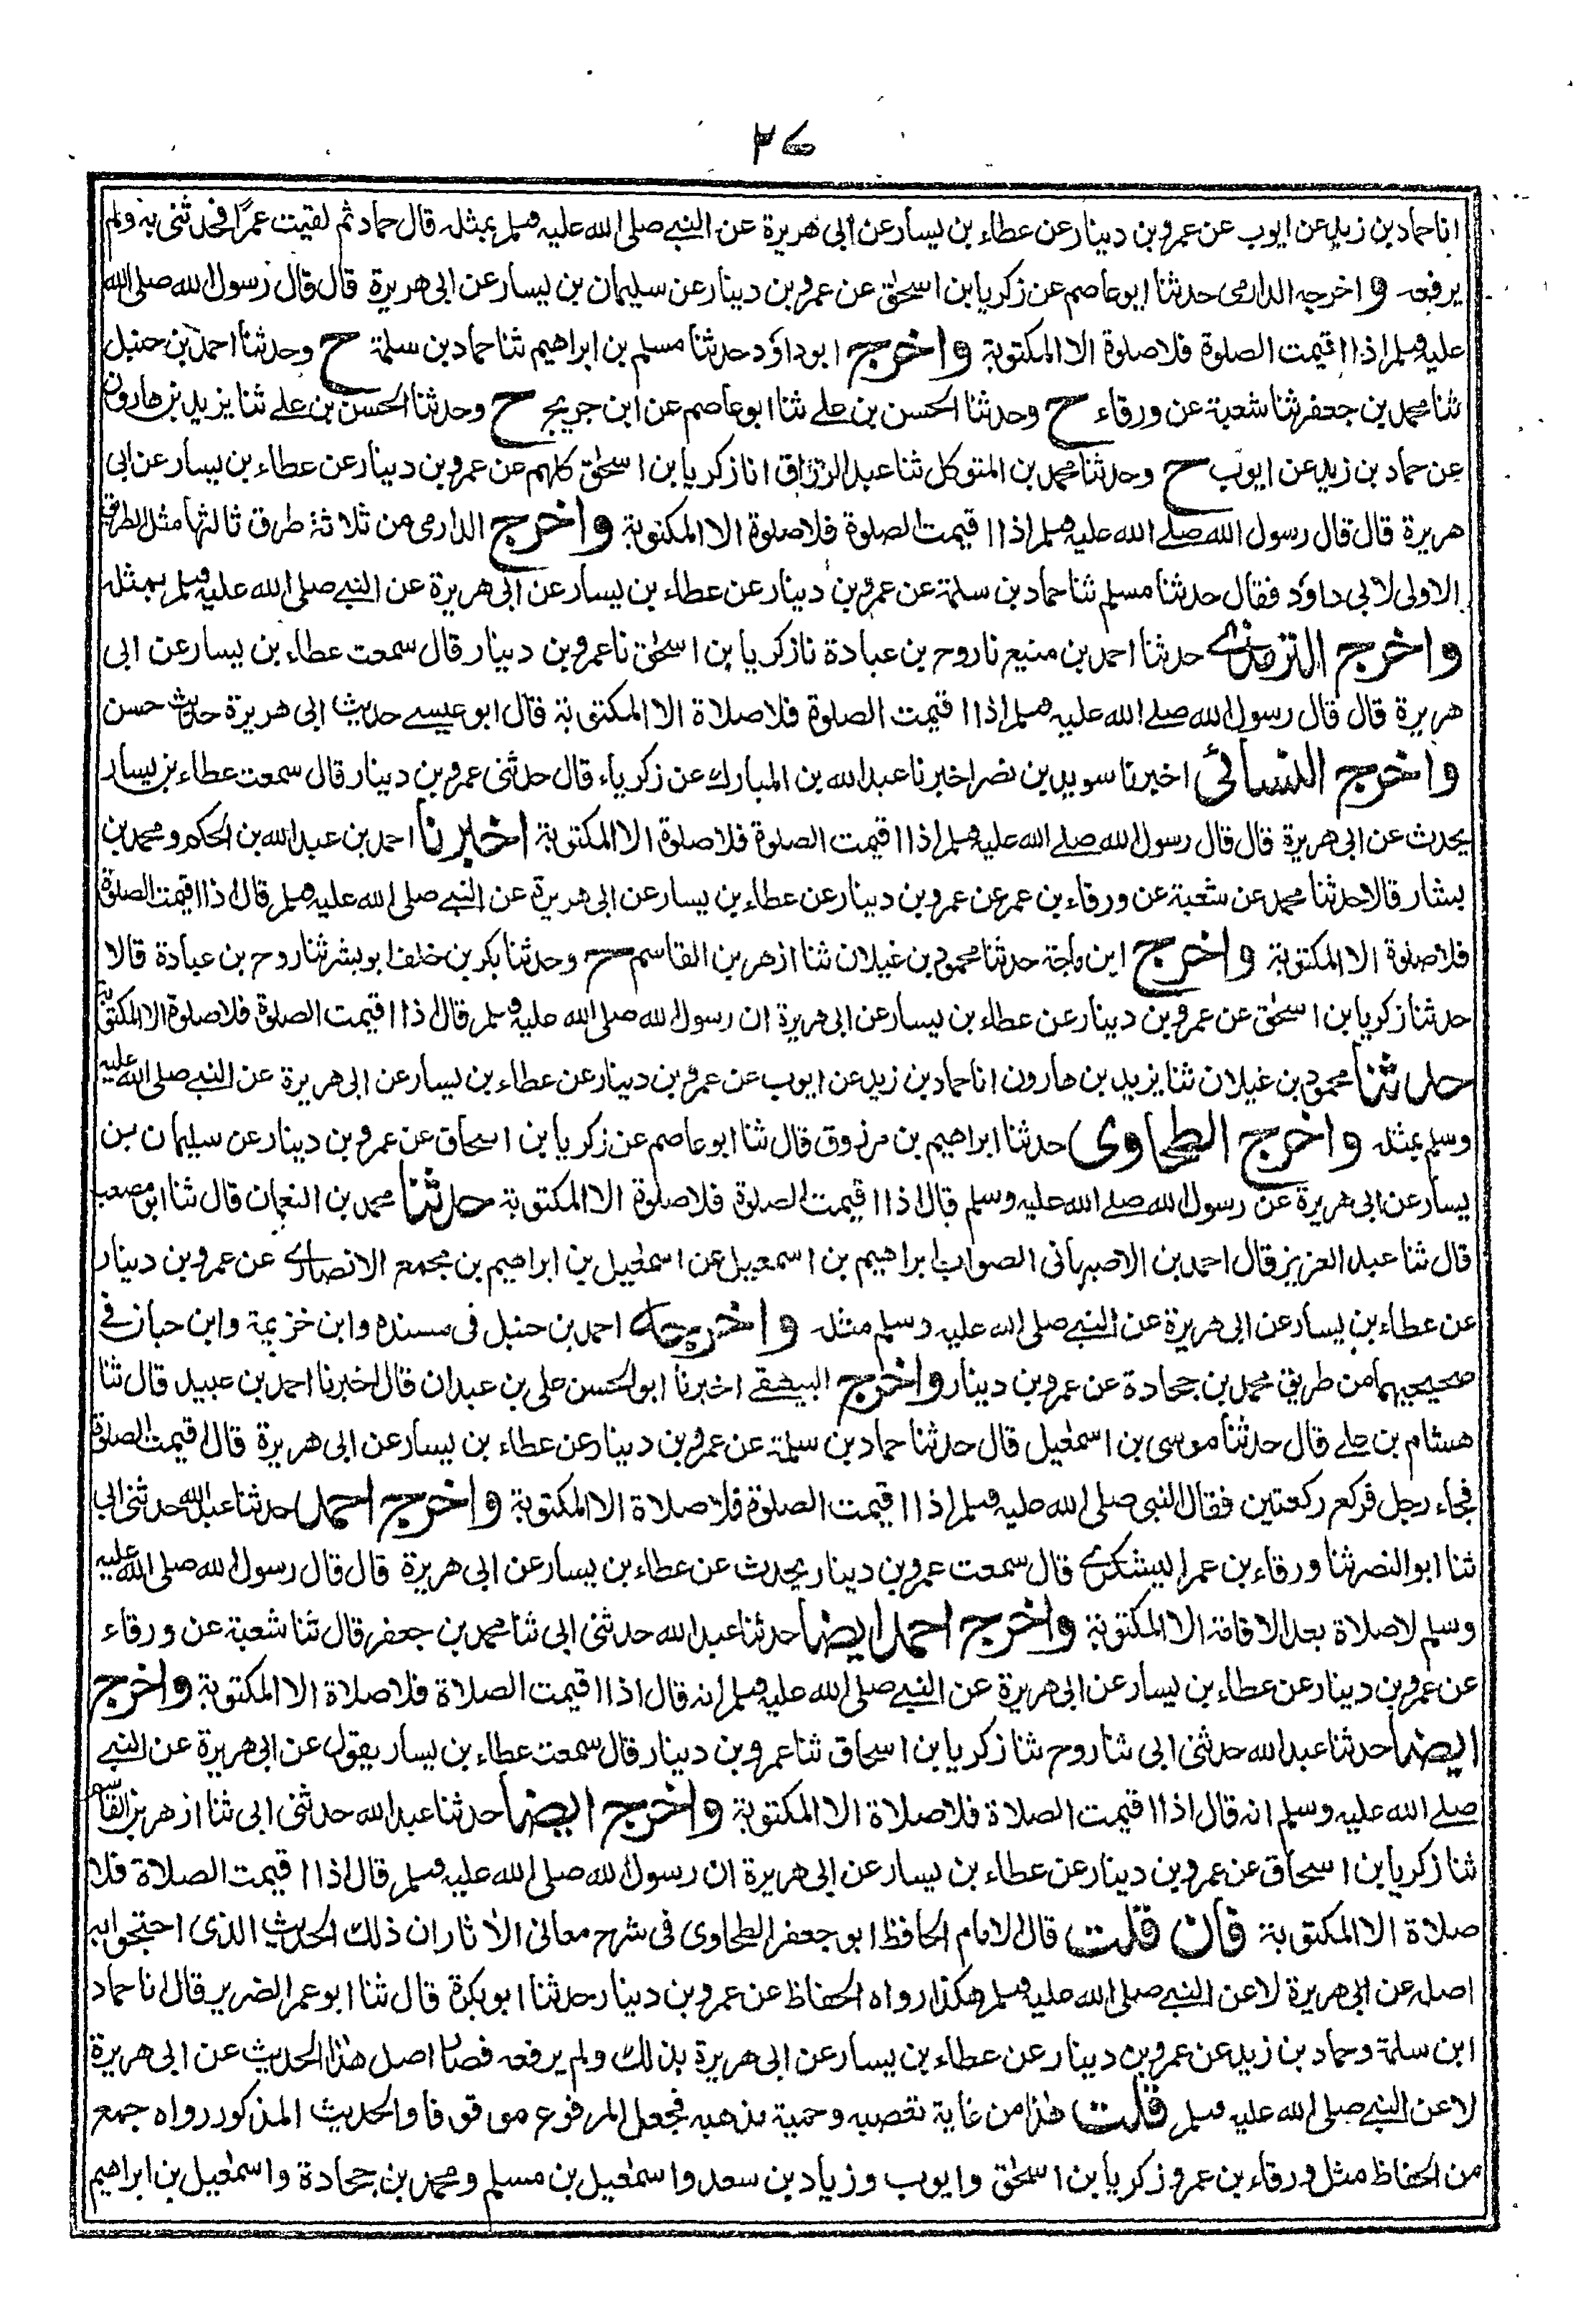 ٢٧
انا حماد بن زيد عن ايوب عن عمرو بن دينار عن عطاء بن يسار عن ابى هريرة عن النبے صلى الله عليه وسلم بمثله قال حماد ثم لقيت عمرًا فحدثنى به ولم
يرفعه واخرجه الدارمى حدثنا ابو عاصم عن زكريا بن اسحٰق عن عمرو بن دينار عن سليمان بن يسار عن ابى هريرة قال قال رسول الله صلى الله
عليه وسلم اذا اقيمت الصلوة فلا صلوة الا المكتوبة واخرج ابو داوٗد حدثنا مسلم بن ابراهيم ثنا حماد بن سلمة ح وحدثنا احمد بن حنبل
ثنا محمد بن جعفر ثنا شعبة عن ورقاء ح وحدثنا الحسن بن علے ثنا ابو عاصم عن ابن جريج ح وحدثنا الحسن بن علے ثنا يزيد بن هارون
عن حماد بن زيد عن ايوب ح وحدثنا محمد بن المتوكل ثنا عبد الرزاق انا زكريا بن اسحٰق كلهم عن عمرو بن دينار عن عطاء بن يسار عن ابى
هريرة قال قال رسول الله صلے الله عليه وسلم اذا اقيمت الصلوة فلا صلوة الا المكتوبة واخرج الدارمى من ثلاثة طرق ثالثها مثل الطريق
الاولى لابى داوٗد فقال حدثنا مسلم ثنا حماد بن سلمة عن عمرو بن دينار عن عطاء بن يسار عن ابى هريرة عن النبے صلى الله عليه وسلم بمثله
واخرج الترمذے حدثنا احمد بن منيع نا روح بن عبادة نا زكريا بن اسحٰق نا عمرو بن دينار قال سمعت عطاء بن يسار عن ابى
هريرة قال قال رسول الله صلے الله عليه وسلم اذا اقيمت الصلوة فلا صلاة الا المكتوبة قال ابو عيسے حديث ابى هريرة حديث حسن
واخرج النسائى اخبرنا سويد بن نصر اخبرنا عبد الله بن المبارك عن زكرياء قال حدثنى عمرو بن دينار قال سمعت عطاء بن يسار
يحدث عن ابى هريرة قال قال رسول الله صلے الله عليه وسلم اذا اقيمت الصلوة فلا صلوة الا المكتوبة اخبرنا احمد بن عبد الله بن الحكم و محمد بن
بشار قالا حدثنا محمد عن شعبة عن ورقاء بن عمر عن عمرو بن دينار عن عطاء بن يسار عن ابى هريرة عن النبے صلى الله عليه وسلم قال اذا اقيمت الصلوة
فلا صلوة الا المكتوبة واخرج ابن ماجة حدثنا محمود بن غيلان ثنا ازهر بن القاسم ح وحدثنا بكر بن خلف ابو بشر ثنا روح بن عبادة قالا
حدثنا زكريا بن اسحٰق عن عمرو بن دينار عن عطاء بن يسار عن ابى هريرة ان رسول الله صلى الله عليه وسلم قال اذا اقيمت الصلوة فلا صلوة الا المكتوبة
حدثنا محمود بن غيلان ثنا يزيد بن هارون انا حماد بن زيد عن ايوب عن عمرو بن دينار عن عطاء بن يسار عن ابى هريرة عن النبے صلى الله عليه
وسلم بمثله واخرج الطحاوى حدثنا ابراهيم بن مرزوق قال ثنا ابو عاصم عن زكريا بن اسحاق عن عمرو بن دينار عن سليمان بن
يسار عن ابى هريرة عن رسول الله صلے الله عليه وسلم قال اذا اقيمت الصلوة فلا صلوة الا المكتوبة حدثنا محمد بن النعمان قال ثنا ابو مصعب
قال ثنا عبد العزيز قال احمد بن الاصبهانى الصواب ابراهيم بن اسمعيل عن اسمٰعيل بن ابراهيم بن مجمع الانصارے عن عمرو بن دينار
عن عطاء بن يسار عن ابى هريرة عن النبے صلى الله عليه وسلم مثله واخرجه احمد بن حنبل فى مسنده وابن خزيمة وابن حبان فے
صحيحيهما من طريق محمد بن جحادة عن عمرو بن دينار واخرج البيهقے اخبرنا ابو الحسن على بن عبدان قال اخبرنا احمد بن عبيد قال ثنا
هشام بن علے قال حدثنا موسى بن اسمٰعيل قال حدثنا حماد بن سلمة عن عمرو بن دينار عن عطاء بن يسار عن ابى هريرة قال اقيمت الصلوة
فجاء رجل فركع ركعتين فقال النبى صلى الله عليه وسلم اذا اقيمت الصلوة فلا صلاة الا المكتوبة واخرج احمد حدثنا عبد الله حدثنى ابى
ثنا ابو النضر ثنا ورقاء بن عمر اليشكرے قال سمعت عمرو بن دينار يحدث عن عطاء بن يسار عن ابى هريرة قال قال رسول الله صلى الله عليه
وسلم لا صلاة بعد الاقامة الا المكتوبة واخرج احمد ايضا حدثنا عبد الله حدثنى ابى ثنا محمد بن جعفر قال ثنا شعبة عن ورقاء
عن عمرو بن دينار عن عطاء بن يسار عن ابى هريرة عن النبے صلى الله عليه وسلم انه قال اذا اقيمت الصلاة فلا صلاة الا المكتوبة واخرج
ايضا حدثنا عبد الله حدثنى ابى ثنا روح ثنا زكريا بن اسحاق ثنا عمرو بن دينار قال سمعت عطاء بن يسار يقول عن ابى هريرة عن النبے
صلے الله عليه وسلم انه قال اذا اقيمت الصلاة فلا صلاة الا المكتوبة واخرج ايضا حدثنا عبد الله حدثنى ابى ثنا ازهر بن القاسم
ثنا زكريا بن اسحاق عن عمرو بن دينار عن عطاء بن يسار عن ابى هريرة ان رسول الله صلى الله عليه وسلم قال اذا اقيمت الصلاة فلا
صلاة الا المكتوبة فان قلت قال الامام الحافظ ابو جعفر الطحاوى فى شرح معانى الاٰثار ان ذلك الحديث الذى احتجوا به
اصله عن ابى هريرة لا عن النبے صلى الله عليه وسلم هكذا رواه الحفاظ عن عمرو بن دينار حدثنا ابو بكرة قال ثنا ابو عمر الضرير قال انا حماد
ابن سلمة وحماد بن زيد عن عمرو بن دينار عن عطاء بن يسار عن ابى هريرة بذلك ولم يرفعه فصار اصل هٰذا الحديث عن ابى هريرة
لا عن النبے صلى الله عليه وسلم قلت هٰذا من غاية تعصبه وحمية مذهبه فجعل المرفوع موقوفا والحديث المذكور رواه جمع
من الحفاظ مثل ورقاء بن عمر و زكريا بن اسحٰق وايوب وزياد بن سعد واسمٰعيل بن مسلم و محمد بن جحادة واسمٰعيل بن ابراهيم